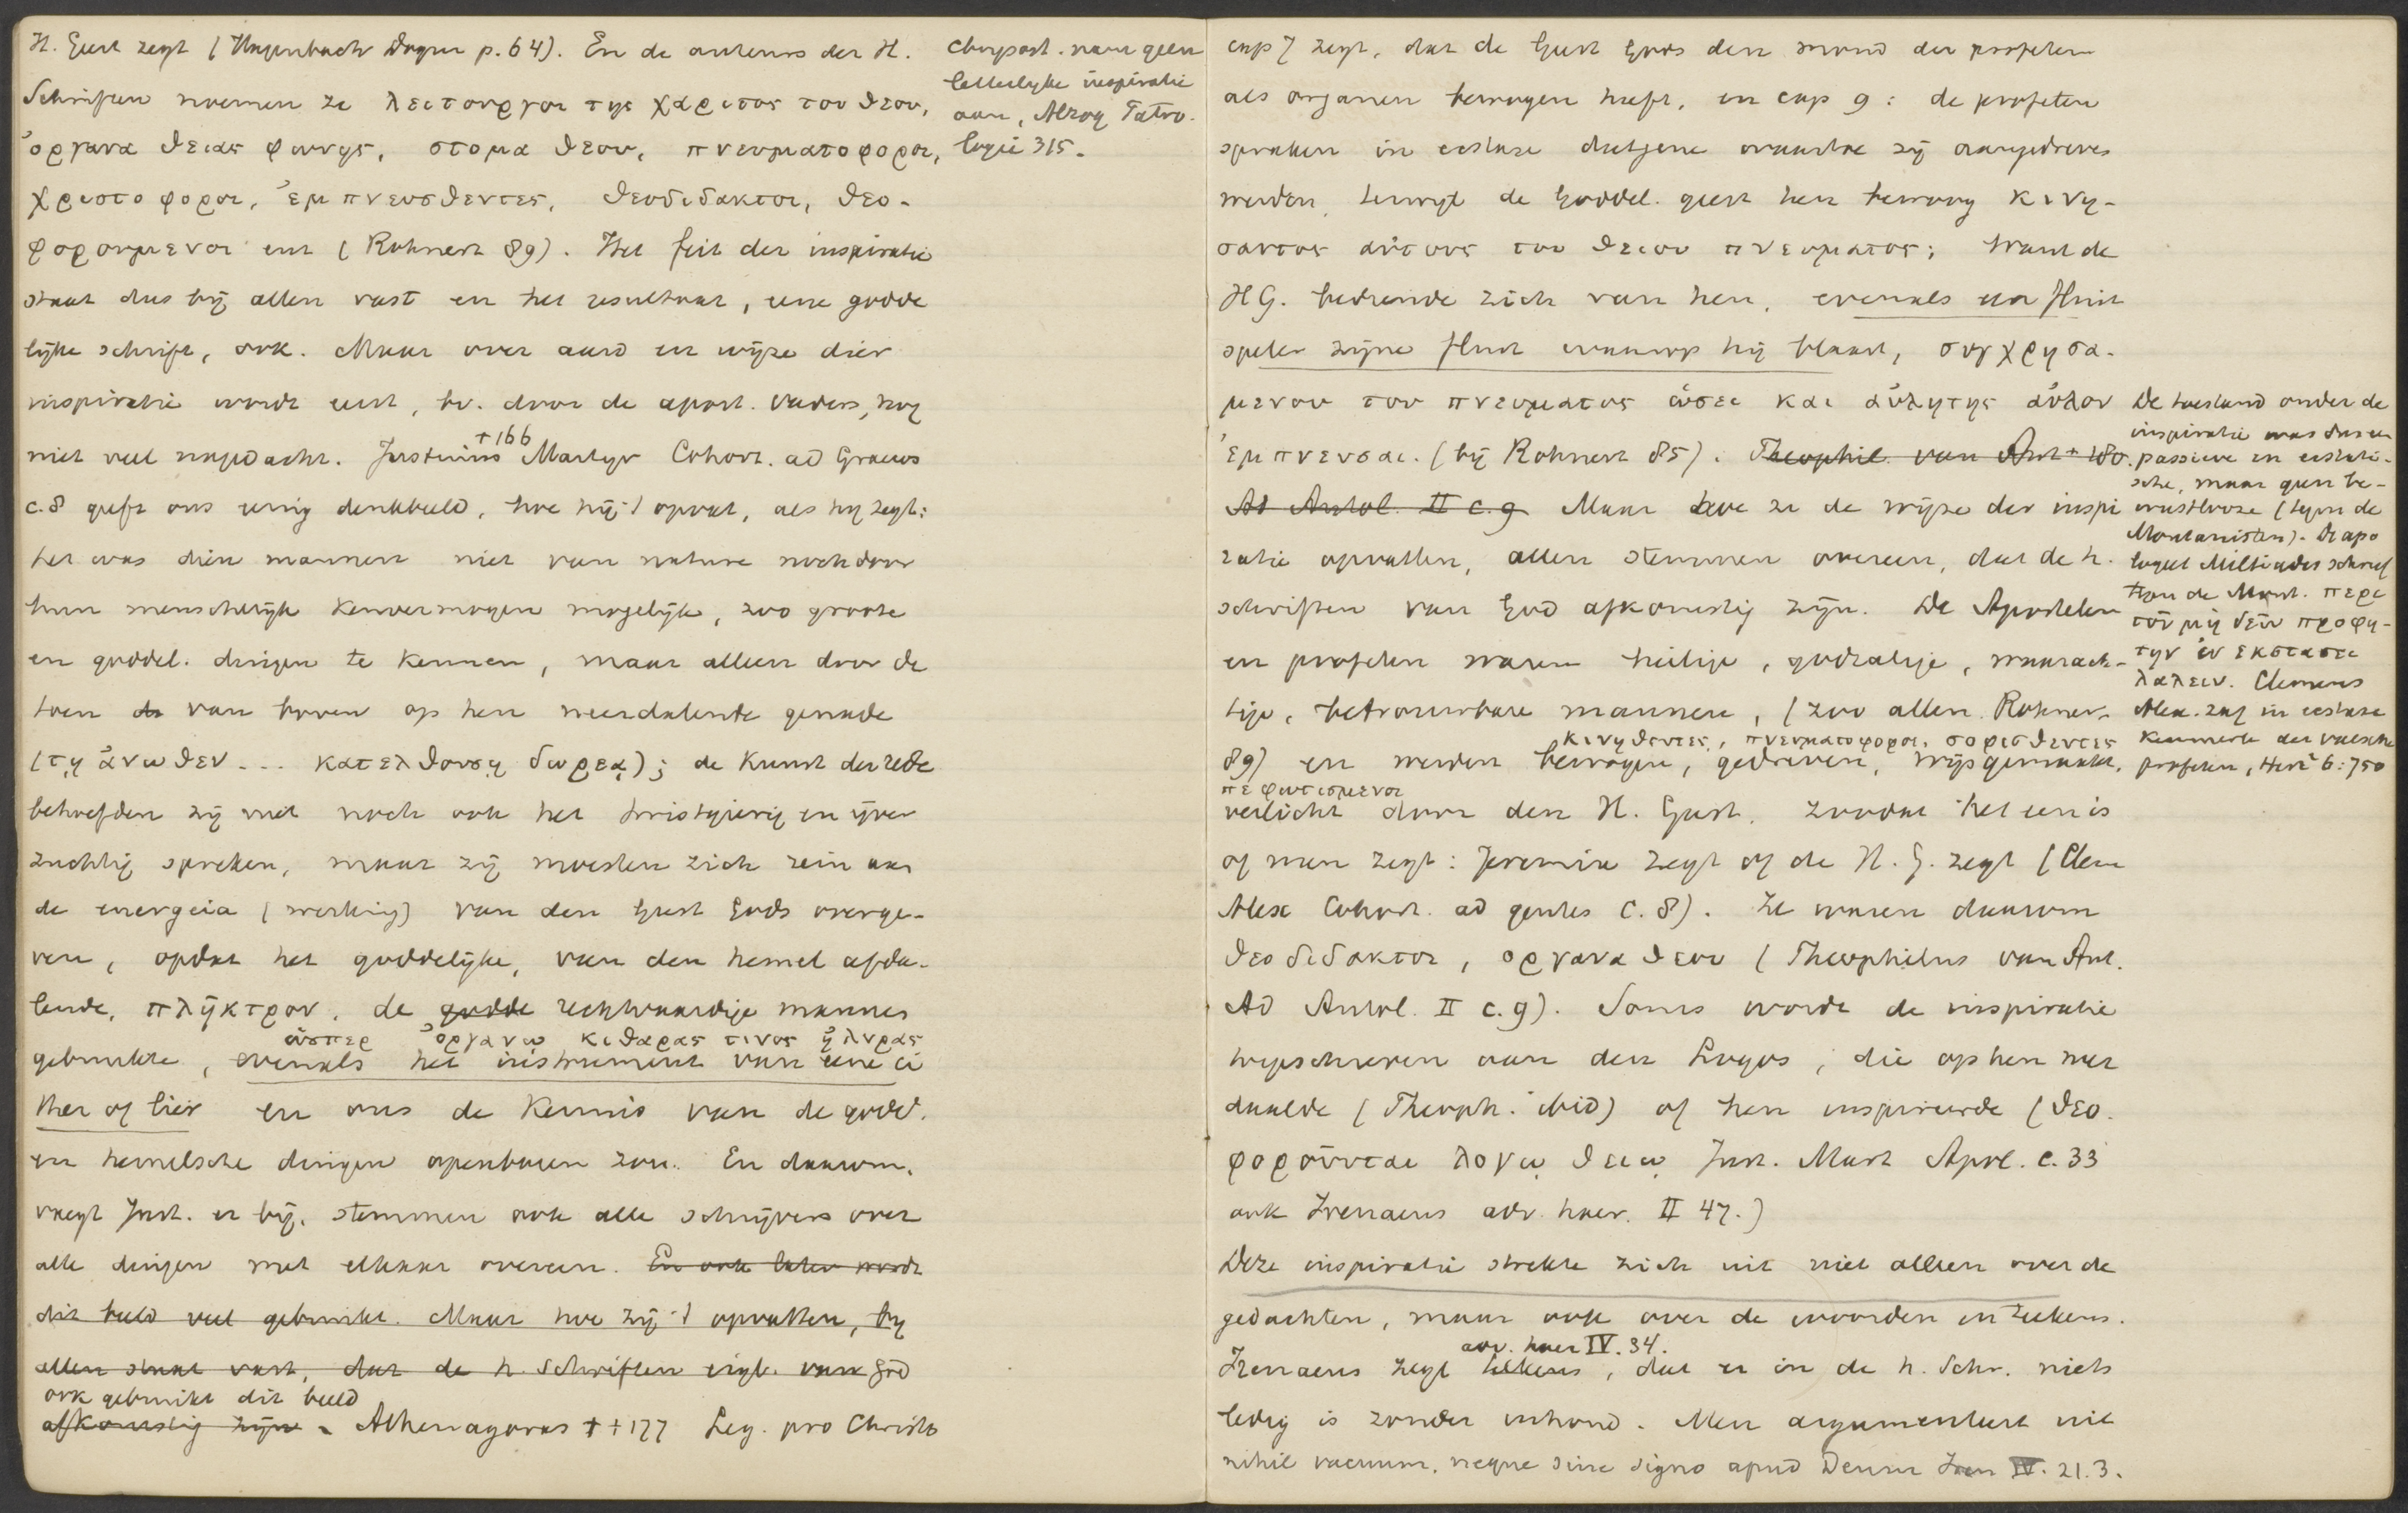 H. Geest zegt (Hagenbach Dogm p. 64). En de auteurs der H.
Schriften noemen ze λειτουργοι της χαριτος του θεου,
ὀργανα θειας φωνης, στομα θεου, πνευματοφοροι,
χριστοφοροι, ἐμπνευσθεντες, θεοδιδακτοι, θεο-
φορουμενοι enz (Rohnert 89). Het feit der inspiratie
staat dus bij allen vast en het resultaat, eene godde
lijke schrift, ook. Maar over aard en wijze dier
inspiratie wordt eerst, bv. door de apost. vaders, nog
niet veel nagedacht. Justinus Martyr Cohort. ad Graecos
+ 166
c. 8 geeft ons eenig denkbeeld, hoe hij 't opvat, als hij zegt:
het was dien mannen niet van nature noch door
hun menschelijk kenvermogen mogelijk, zoo groote
en goddel. dingen te kennen, maar alleen door de
toen de van boven op hen neerdalende genade
(τῃ ἀνωθεν ... κατελθουσῃ δωρεᾳ); de kunst der rede
behoefden zij niet noch ook het twistgierig en ijver
zuchtig spreken, maar zij moesten zich rein aan
de energeia (werking) van den Geest Gods overge-
ven, opdat het goddelijke, van den hemel afda-
lende, πλῆκτρον, de godde rechtvaardige mannen
ὡσπερ ὀργανῳ κιθαρας τινος ἠ λυρας
gebruikte, evenals het instrument van eene ci
ther of lier en ons de kennis van de godd.
en hemelsche dingen openbaren zou. En daarom,
voegt Just. er bij, stemmen ook alle schrijvers over
alle dingen met elkaar overeen. En ook later wordt
dit beeld veel gebruikt. Maar hoe zij 't opvatten, bij
allen staat vast, dat de h. Schriften eigl. van God
ook gebruikt dit beeld
afkomstig zijn. Athenagoras + + 177 Leg. pro Christ
Chrysost. nam geen
letterlijke inspiratie
aan, Alzog Patro-
logie 315.
cap 7 zegt, dat de Geest Gods den mond der profeten
als organen bewogen heeft, en cap 9: de profeten
spraken in ecstase datgene waartoe zij aangedreven
werden, terwijl de Goddel. geest hen bewoog κινη-
σαντος αὐτους του θειου πνευματος; want de
HG. bediende zich van hen, evenals een fluit
speler zijne fluit waarop hij blaast, συγχρησα-
μενου του πνευματος ὡσει και αὐλητης αὐλον
ἐμπνευσαι. (bij Rohnert 85). Theophil. van Ant + 180.
Ad Autol. II c. 9 Maar hoe ze de wijze der inspi
ratie opvatten, allen stemmen overeen, dat de h.
schriften van God afkomstig zijn. De Apostelen
en profeten waren heilige, godzalige, waarach-
tige, betrouwbare mannen, (zoo allen. Rohnert
κινηθεντες, πνευματοφοροι, σοφισθεντες
89) en werden bewogen, gedreven, wijsgemaakt,
πεφωτισμενοι
verlicht door den H. Geest, zoodat het een is
of men zegt: Jeremia zegt of de H. G. zegt (Clem
Alex Cohort. ad gentes c. 8). Ze waren daarom
θεοδιδακτοι, οργανα θεου (Theophilus van Ant.
Ad Autol. II c. 9). Soms wordt de inspiratie
toegeschreven aan den Logos, die op hen neer
daalde (Theoph. ibid) of hen inspireerde (θεο
φορουνται λογῳ θειῳ Just. Mart Apol. c. 33
ook Irenaeus adv. haer. II 47.)
Deze inspiratie strekte zich uit niet alleen over de
gedachten, maar ook over de woorden en teekens.
adv. haer IV. 34.
Irenaeus zegt telkens, dat er in de h. Schr. niets
ledig is zonder inhoud. Men argumenteert uit
nihil vacuum, neque sine signo apud Deum Iren IV. 21. 3.
De toestand onder de
inspiratie was dus een
passieve en ecstati-
sche, maar geen be-
wustlooze (tegen de
Montanisten). De apo
logeet Miltiades schreef
tegen de Mont. περι
του μη δειν προφη-
την ἐν εκστασει
λαλειν. Clemens
Alex. zag in ecstase
kenmerk der valsche
profeten, Herz² 6: 750